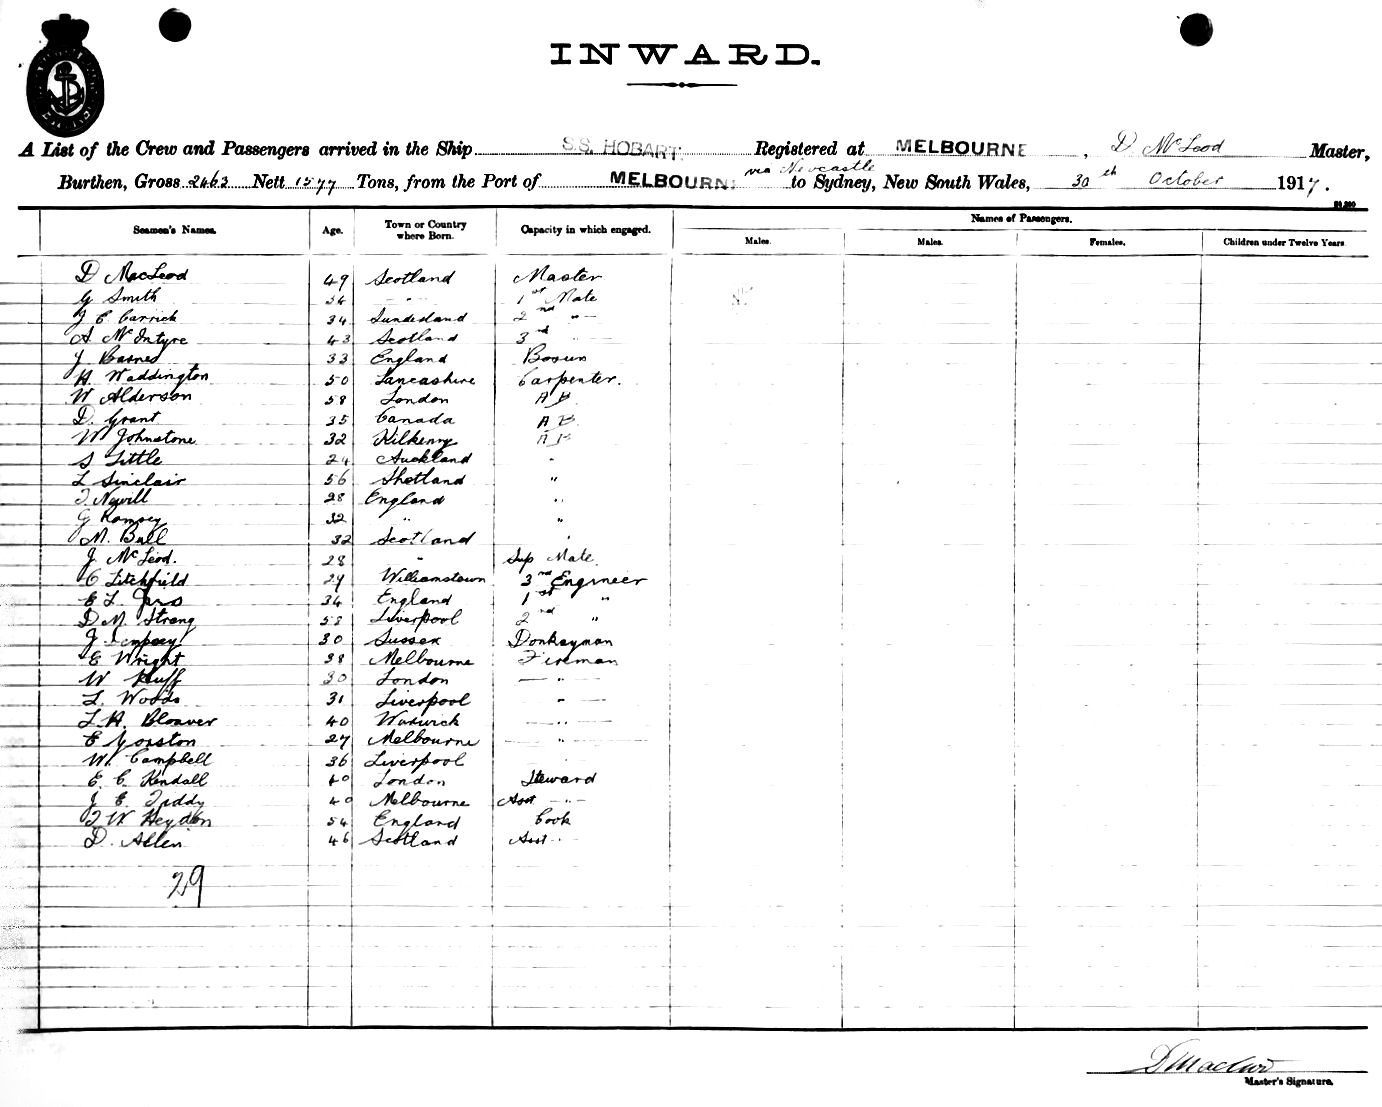 INWARD.
A List of the Crew and Passengers arrived in the Ship S.S. HOBART. Registered at MELBOURNE, D McLeod Master,
Burthen, Gross 2463 Nett 1577 Tons, from the Port of MELBOURNE via Newcastle to Sydney, New South Wales, 30th October 1917.
Names of Passengers.
Seamen's Names. Age. Town or Country where Born. Capacity in which engaged. Males. Males. Females. Children under Twelve Years.
D MacLeod 49 Scotland Master
G Smith 34 " 1st Mate
J C Carrick 34 Sunderland 2nd "
A McIntyre 43 Scotland 3rd "
J Barnes 33 England Bosun
H. Waddington 50 Lancashire Carpenter.
W Alderson 58 London AB
D. Grant 35 Canada AB
W Johnstone 32 Kilkenny AB
S Little 24 Auckland "
L Sinclair 56 Shetland "
T. Newill 28 England "
G Ramsey 32 " "
M. Ball 32 Scotland "
J McLeod. 28 " Sup Mate
C Litchfield 29 Williamstown 3rd Engineer
E L 34 England 1st "
D M. Strang 58 Liverpool 2nd "
J Dempsey 30 Sussex Donkeyman
E Wright 38 Melbourne Fireman
W Huff 30 London "
L. Woods 31 Liverpool "
L. H. Bloaver 40 Warwick "
E Gorston 27 Melbourne "
W. Campbell 36 Liverpool "
E. C. Kendall 40 London Steward
J E Tiddy 40 Melbourne Asst "
T W Heydon 54 England Cook
D. Allen 46 Scotland Asst "
29
D MacLeod
Master's Signature.